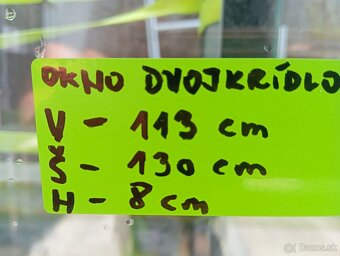 OKNO DVOJKRÍDLO
V - 113 cm
Š - 130 cm
H - 8 cm
Bazos.sk